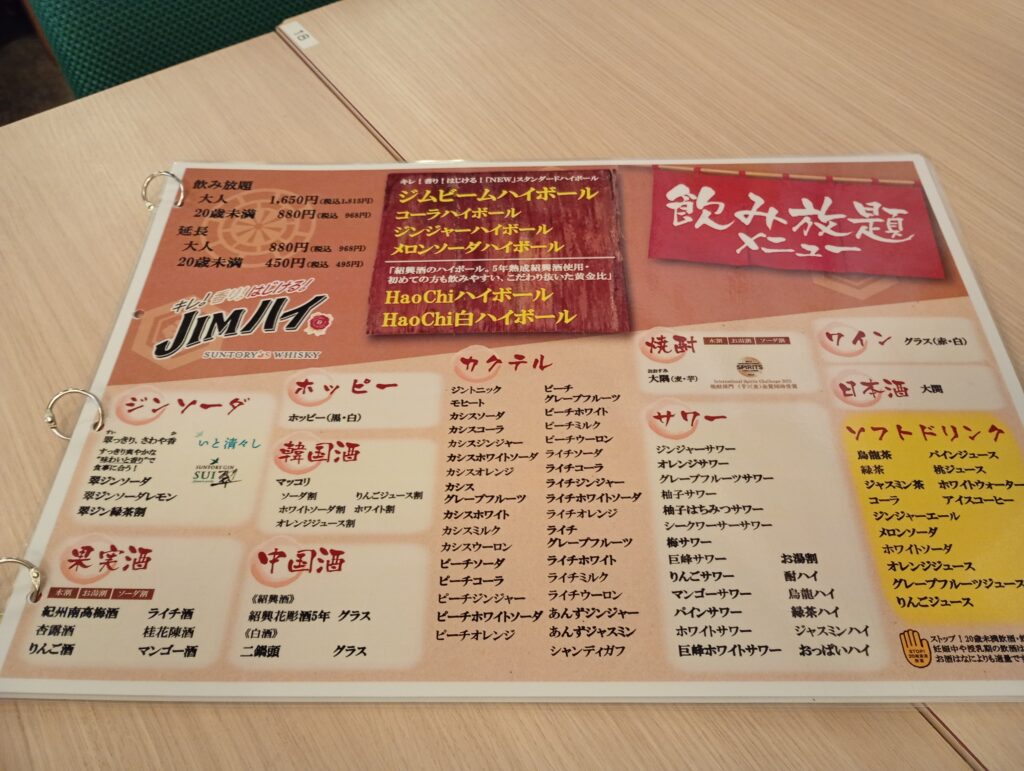 18
飲み放題
大人 1,650円(税込1,815円)
20歳未満 880円(税込 968円)
延長
大人 880円(税込 968円)
20歳未満 450円(税込 495円)
キレ!香り!はじける!
JIMハイ
SUNTORY WHISKY
キレ!香り!はじける!「NEW」スタンダードハイボール
ジムビームハイボール
コーラハイボール
ジンジャーハイボール
メロンソーダハイボール
「紹興酒のハイボール。5年熟成紹興酒使用・
初めての方も飲みやすい、こだわり抜いた黄金比」
HaoChiハイボール
HaoChi白ハイボール
飲み放題
メニュー
ジンソーダ
翠っきり、さわや香
すっきり爽やかな
"味わいと香り"で
食事に合う!
翠ジンソーダ
翠ジンソーダレモン
翠ジン緑茶割
いと清々し
SUNTORY GIN
SUI 翠
ホッピー
ホッピー(黒・白)
韓国酒
マッコリ
ソーダ割 りんごジュース割
ホワイトソーダ割 ホワイト割
オレンジジュース割
果実酒
水割 お湯割 ソーダ割
紀州南高梅酒 ライチ酒
杏露酒 桂花陳酒
りんご酒 マンゴー酒
中国酒
《紹興酒》
紹興花彫酒5年 グラス
《白酒》
二鍋頭 グラス
カクテル
ジントニック
モヒート
カシスソーダ
カシスコーラ
カシスジンジャー
カシスホワイトソーダ
カシスオレンジ
カシス
グレープフルーツ
カシスホワイト
カシスミルク
カシスウーロン
ピーチソーダ
ピーチコーラ
ピーチジンジャー
ピーチホワイトソーダ
ピーチオレンジ
ピーチ
グレープフルーツ
ピーチホワイト
ピーチミルク
ピーチウーロン
ライチソーダ
ライチコーラ
ライチジンジャー
ライチホワイトソーダ
ライチオレンジ
ライチ
グレープフルーツ
ライチホワイト
ライチミルク
ライチウーロン
あんずジンジャー
あんずジャスミン
シャンディガフ
焼酎
水割 お湯割 ソーダ割
おおすみ
大隅(麦・芋)
SPIRITS
ワイン グラス(赤・白)
日本酒 大関
サワー
ジンジャーサワー
オレンジサワー
グレープフルーツサワー
柚子サワー
柚子はちみつサワー
シークワーサーサワー
梅サワー
巨峰サワー お湯割
りんごサワー 酎ハイ
マンゴーサワー 烏龍ハイ
パインサワー 緑茶ハイ
ホワイトサワー ジャスミンハイ
巨峰ホワイトサワー おっぱいハイ
ソフトドリンク
烏龍茶 パインジュース
緑茶 桃ジュース
ジャスミン茶 ホワイトウォーター
コーラ アイスコーヒー
ジンジャーエール
メロンソーダ
ホワイトソーダ
オレンジジュース
グレープフルーツジュース
りんごジュース
STOP!
ストップ!20歳未満飲酒・
妊娠中や授乳期の飲酒は
お酒はなによりも適量で